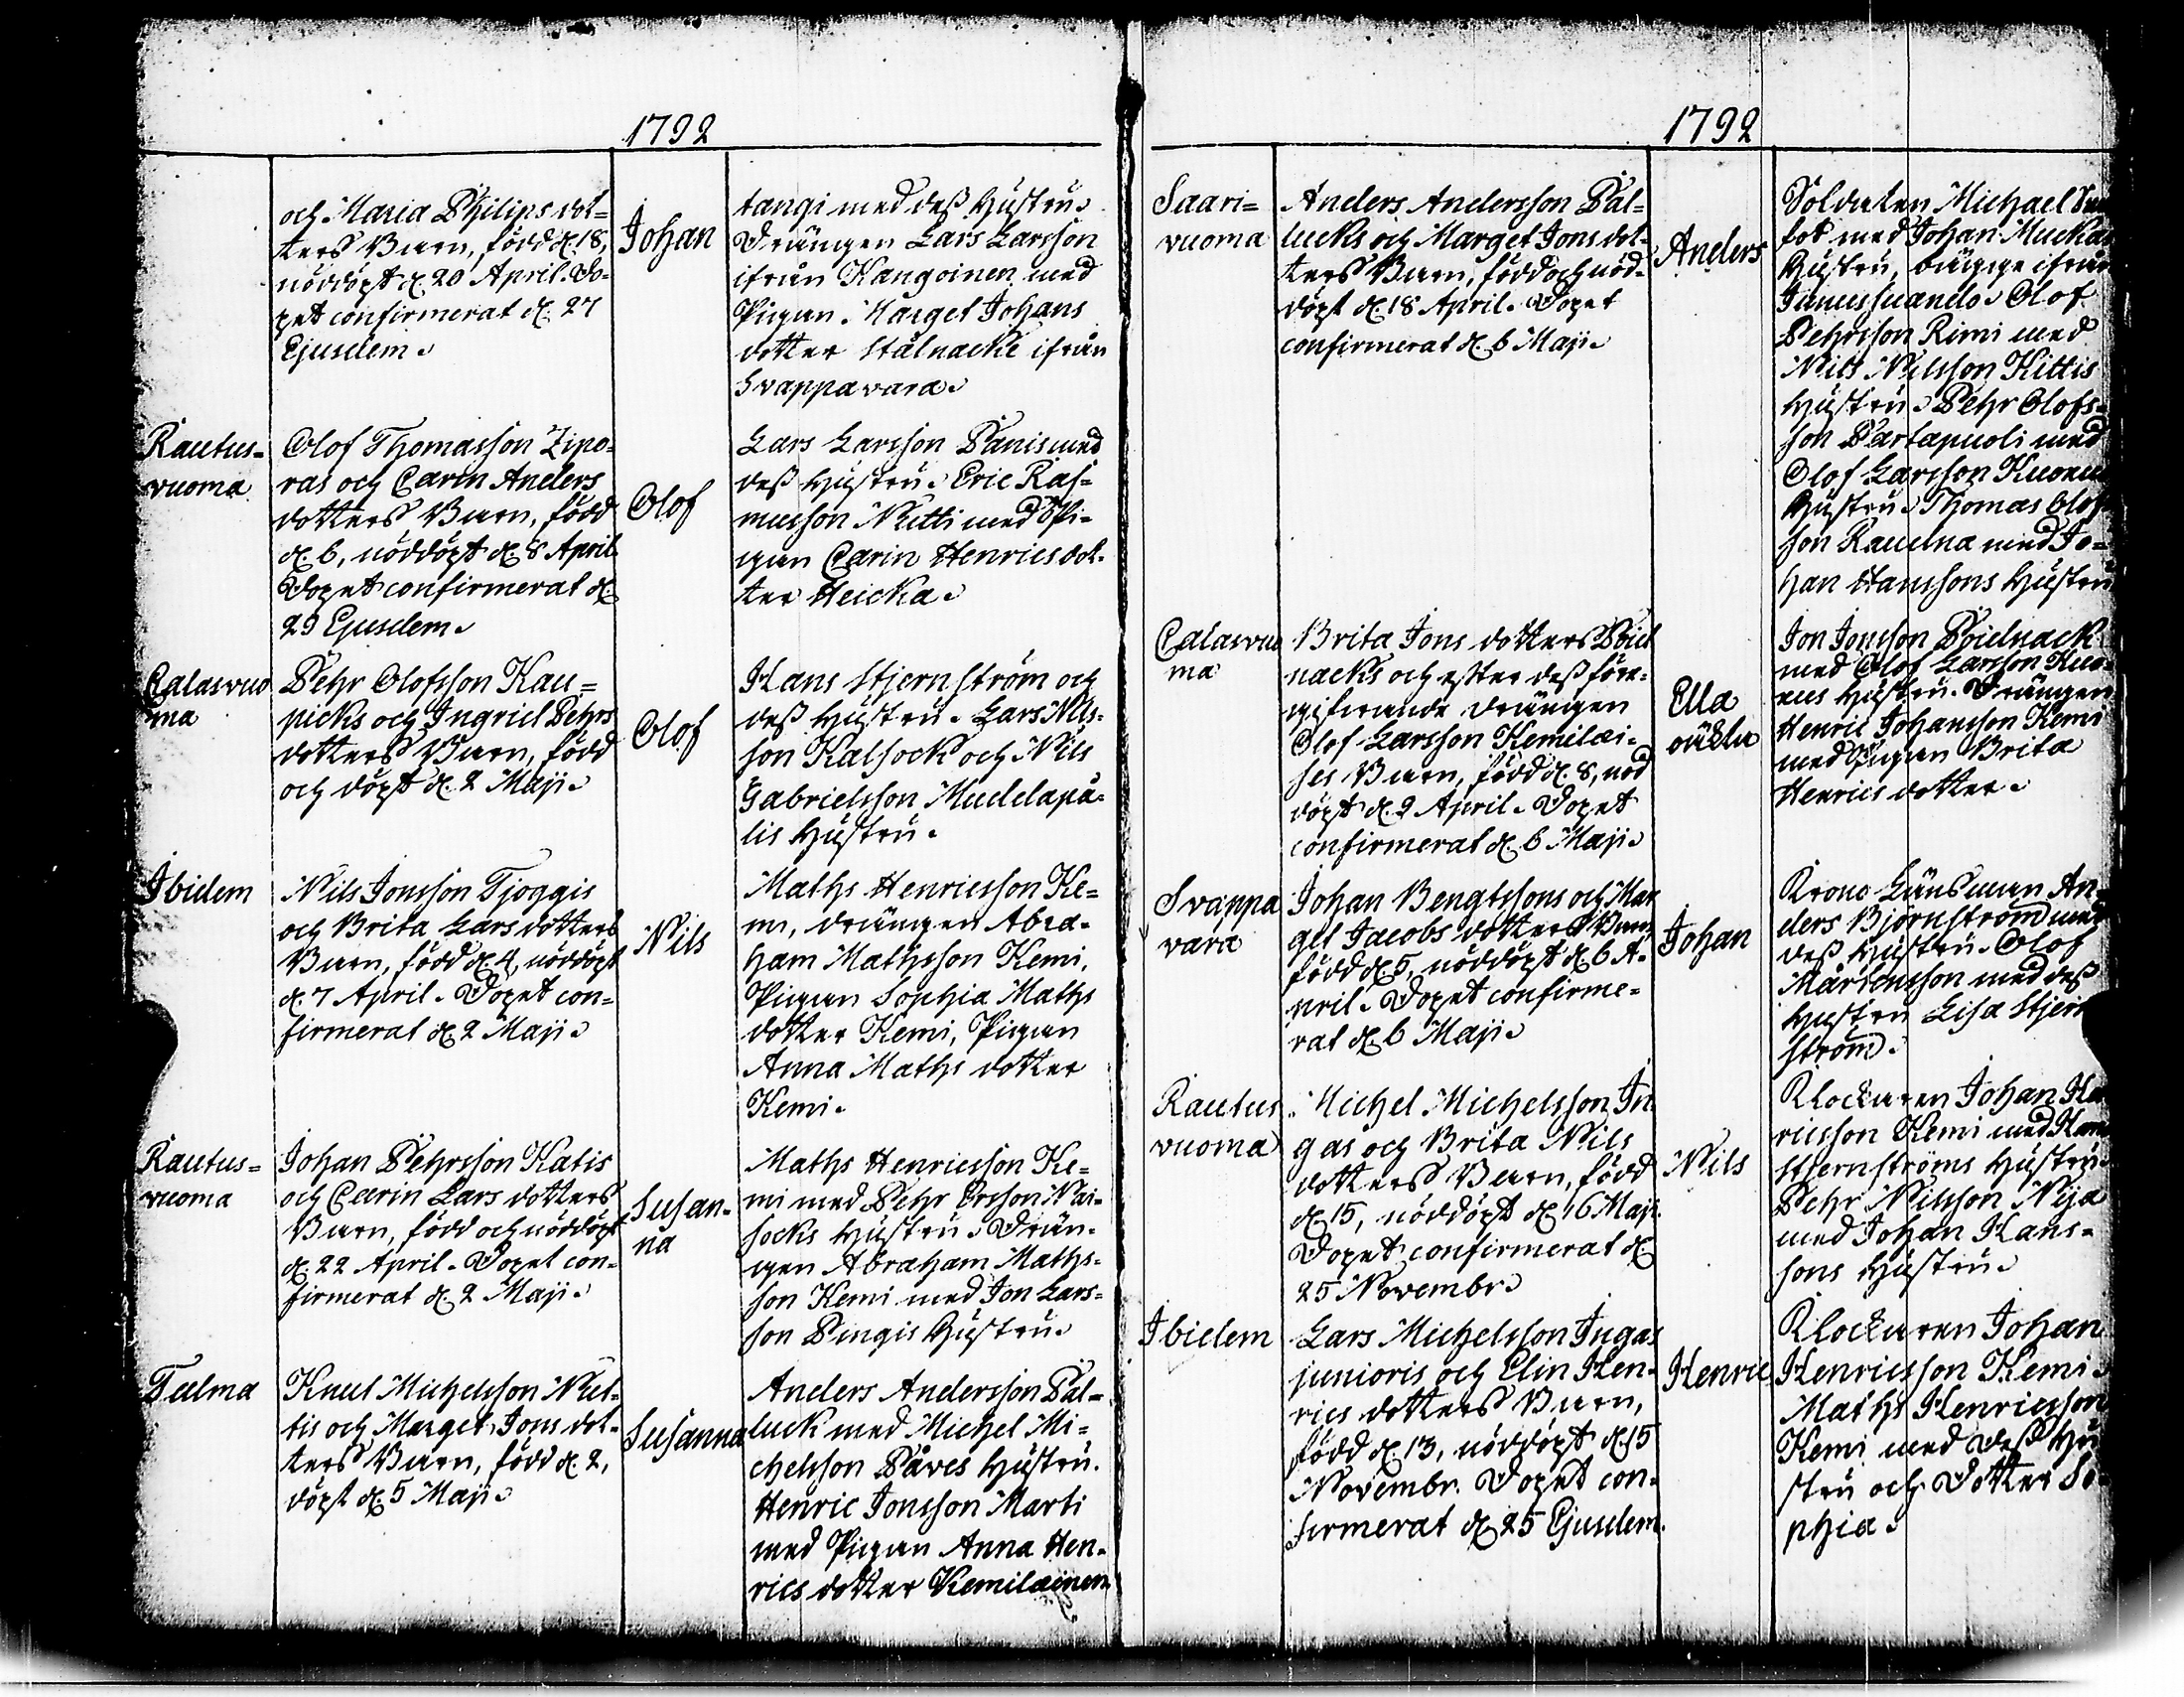 1792
och Maria Philips dot=
ters Barn, född d. 18,
nöddöpt d. 20 April. Do=
pet confirmerat d. 27
Ejusdem.
Johan
tangi med deß Hustru.
Drängen Lars Larsson
ifrån Kangoinen med
Pigan Marget Johans
dotter Stålnacke ifrån
Svappavara.
Rautus=
vuoma
Olof Thomasson Zipo=
ras och Carin Anders
dotters Barn, född
d. 6, nöddöpt d. 8 April
Dopet confirmerat d.
29 Ejusdem.
Olof
Lars Larsson Panis med
deß Hustru. Eric Ras=
musson Nutti med Pi=
gan Carin Henrics dot=
ter Heicka.
Calasvuo
ma
Pehr Olofsson Kau=
picks och Ingrid Pehrs
dotters Barn, född
och döpt d. 2 Maji.
Olof
Hans Stjernström och
deß Hustru. Lars Nils=
son Kalsock och Nils
Gabrielsson Mudelapa=
lis Hustru.
Ibidem
Nils Jonsson Tjoggis
och Brita Lars dotters
Barn, född d. 4, nöddöpt
d. 7 April. Dopet con=
firmerat d. 2 Maji.
Nils
Maths Henricsson Ke=
mi, drängen Abra=
ham Mathsson Kemi,
Pigan Sophia Maths
dotter Kemi, Pigan
Anna Maths dotter
Kemi.
Rautus=
vuoma
Johan Pehrsson Katis
och Carin Lars dotters
Barn, född och nöddöpt
d. 22 April. Dopet con=
firmerat d. 2 Maji.
Susan=
na
Maths Henricsson Ke=
mi med Pehr Ersson Nai=
socks Hustru. Drän=
gen Abraham Maths=
son Kemi med Jon Lars=
son Pingis Hustru.
Talma
Knut Michelsson Nut=
tis och Marget Jons dot=
ters Barn, född d. 2,
döpt d. 5 Maji.
Susanna
Anders Andersson Pal=
luck med Michel Mi=
chelsson Påves Hustru.
Henric Jonsson Marti
med Pigan Anna Hen=
rics dotter Kemilæinen
1792
Saari=
vuoma
Anders Andersson Pal=
lucks och Marget Jons dot=
ters Barn, född och nöd=
döpt d. 18 April. Dopet
confirmerat d. 6 Maji.
Anders
Soldaten Michael
fot med Johan Mucka
Hustru, bägge ifrån
Junussuando. Olof
Pehrsson Rimi med
Nils Nilsson Kittis
Hustru. Pehr Olofs=
son Partapuoli med
Olof Larsson
Hustru. Thomas Olof
son Raudna med Jo=
han Hanssons Hustru
Calasvuo
ma
Brita Jons dotters Poick
nacks och efter deß före=
gifvande drängen
Olof Larsson Kemilæi=
ses Barn, född d. 8, nöd
döpt d. 9 April. Dopet
confirmerat d. 6 Maji.
Ella
oäkta
Jon Jonsson
med Olof Larsson
Hustru. Drängen
Henric Johansson Kemi
med Pigan Brita
Henrics dotter.
Svappa
vara
Johan Bengtssons och Mar
get Jacobs dotters Barn
född d. 5, nöddöpt d. 6 A=
pril. Dopet confirme=
rat d. 6 Maji.
Johan
Krono Länsman An=
ders Björnström med
deß Hustru. Olof
Mårtensson med deß
Hustru Lisa Stjern
ström.
Rautus
vuoma
Michel Michelsson In
gas och Brita Nils
dotters Barn, född
d. 15, nöddöpt d. 16 Maji.
Dopet confirmerat d.
25 Novembr.
Nils
Klockaren Johan Hen
ricsson Kemi med Hans
Stjernströms Hustru.
Pehr Nilsson Nija
med Johan Hans=
sons Hustru.
Ibidem
Lars Michelsson Ingas
junioris och Elin Hen=
rics dotters Barn,
född d. 13, nöddöpt d. 15
Novembr. Dopet con=
firmerat d. 25 Ejusdem.
Henric
Klockaren Johan
Henricsson Kemi.
Maths Henricsson
Kemi med deß Hu
stru och Dotter So=
phia.